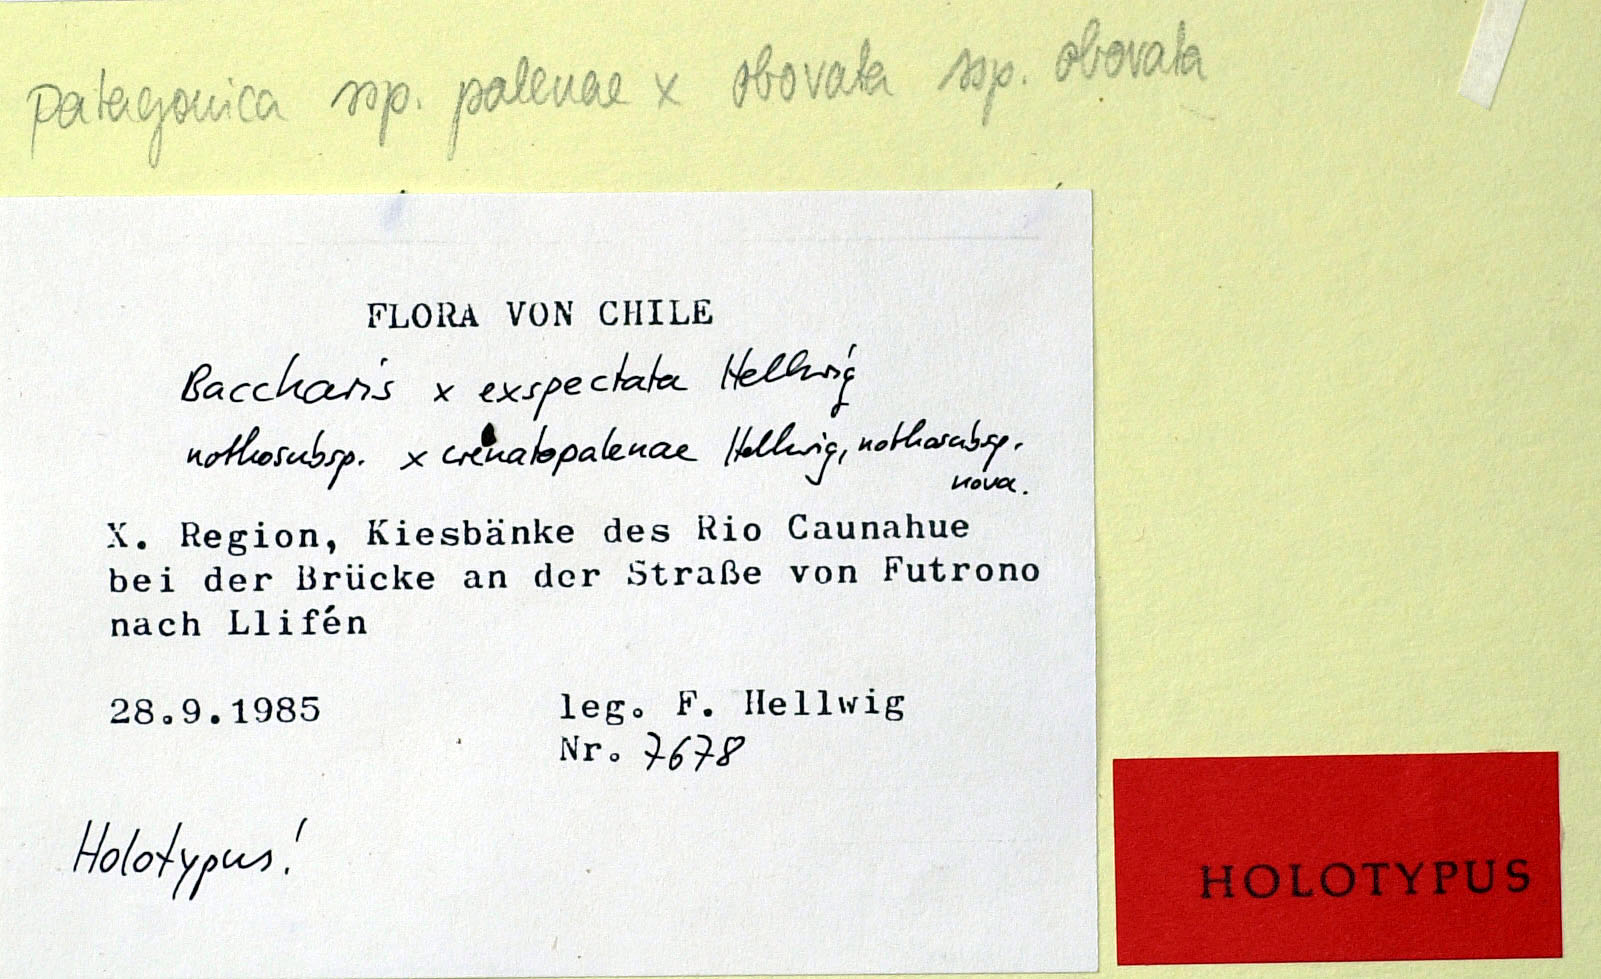 patagonica ssp. palenae x obovata ssp. obovata
FLORA VON CHILE
Baccharis x exspectata Hellwig
nothosubsp. x crenatopalenae Hellwig, nothosubsp.
nova.
X. Region, Kiesbänke des Rio Caunahue
bei der Brücke an der Straße von Futrono
nach Llifén
28.9.1985
leg. F. Hellwig
Nr. 7678
Holotypus!
HOLOTYPUS